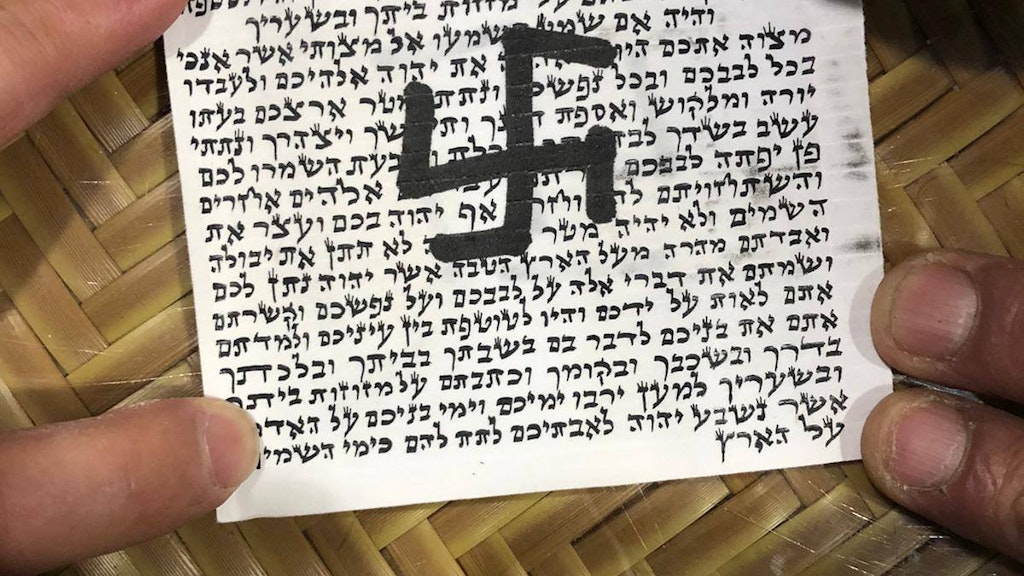 על מזוזות ביתך ובשעריך
והיה אם תשמעו אל מצותי אשר אנכי
מצוה אתכם את יהוה אלהיכם ולעבדו
בכל לבבכם ובכל נפשכם ונתתי מטר ארצכם בעתו
יורה ומלקוש ואספת ויצהרך ונתתי
עשב בשדך השמרו לכם
פן יפתה לבבכם אלהים אחרים
והשתחויתם אף יהוה בכם ועצר את
השמים ולא יהיה מטר לא תתן את יבולה
ואבדתם מהרה מעל הארץ הטבה אשר יהוה נתן לכם
ושמתם את דברי אלה על לבבכם ועל נפשכם וקשרתם
אתם לאות על ידכם והיו לטוטפת בין עיניכם ולמדתם
אתם את בניכם לדבר בם בשבתך בביתך ובלכתך
בדרך ובשכבך ובקומך וכתבתם על מזוזות ביתך
ובשעריך למען ירבו ימיכם וימי בניכם על
אשר נשבע יהוה לאבתיכם לתת להם כימי השמים
על הארץ